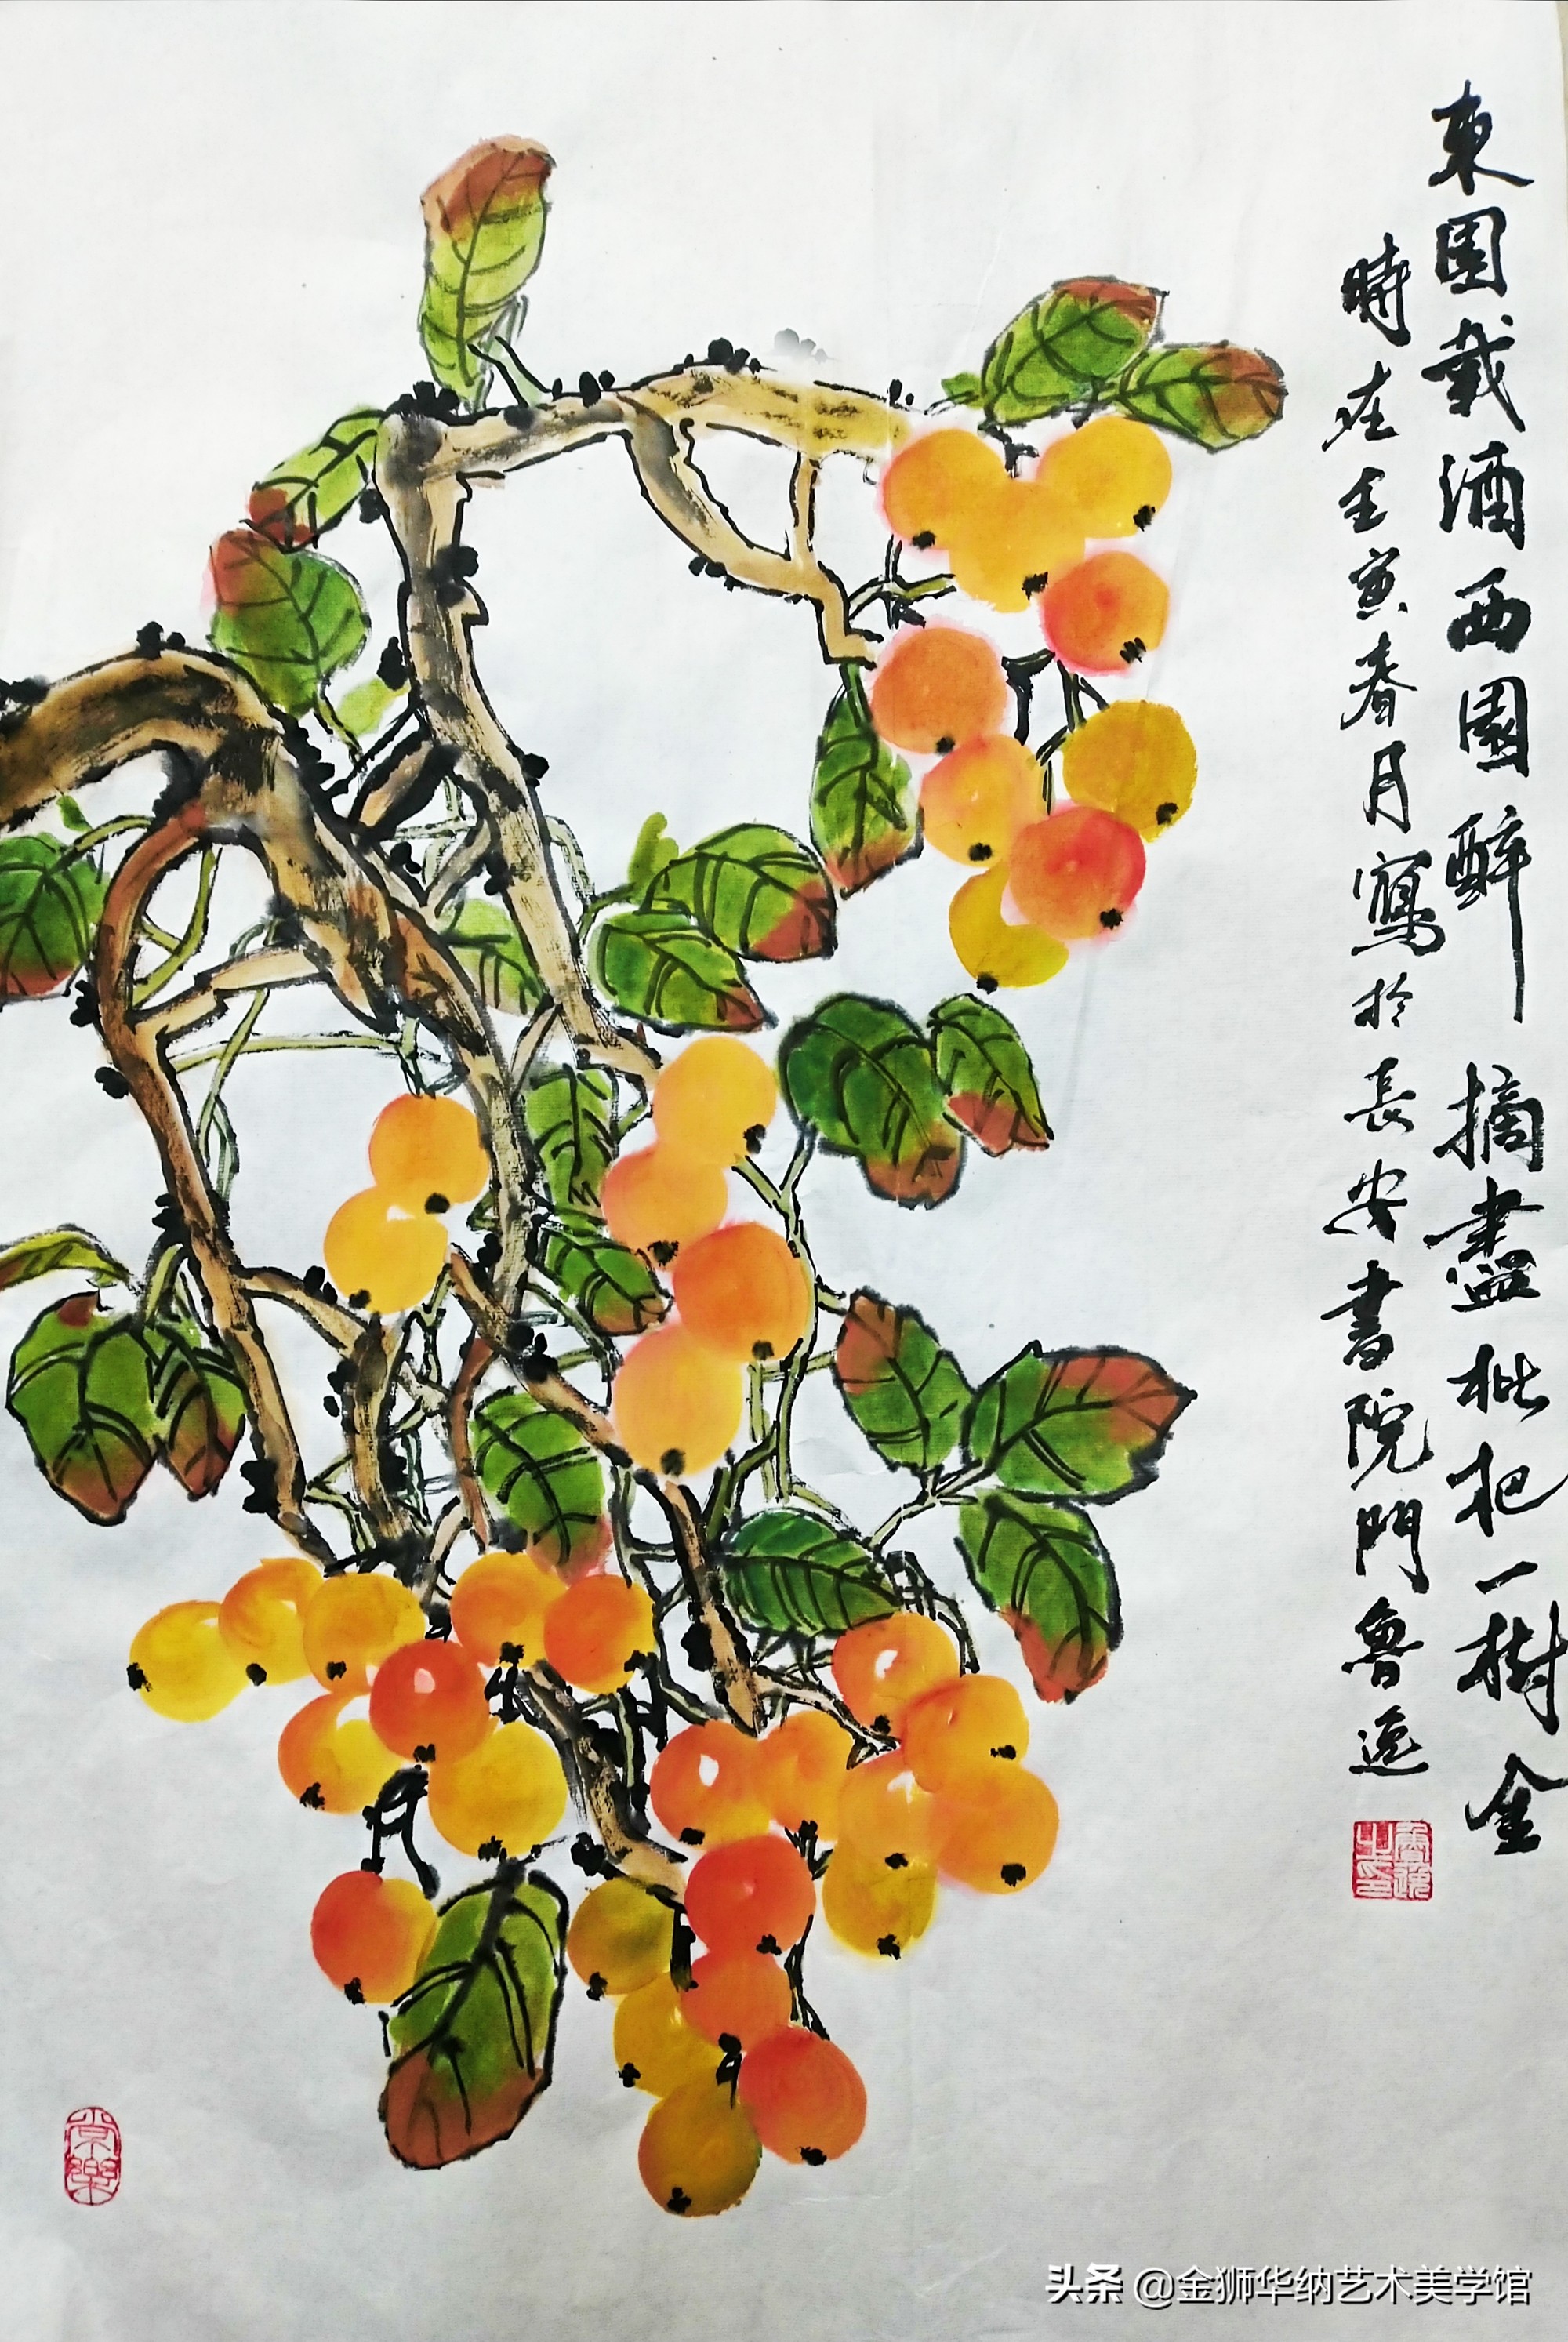 東園載酒西園醉摘盡枇杷一樹金
時在壬寅春月寫於長安書院門魯逸
魯逸之印
常樂
头条 @金狮华纳艺术美学馆